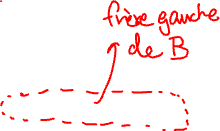 frère gauche
de B